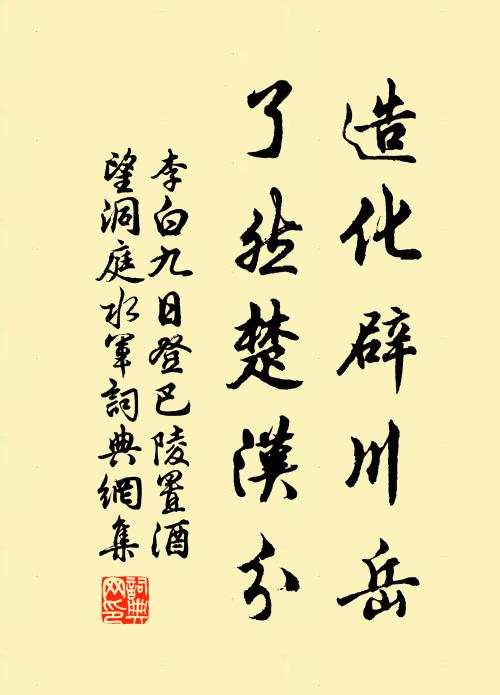 造化辟川岳
了然楚漢分
李白九日登巴陵置酒
望洞庭水軍詞典網集
詞典
网印